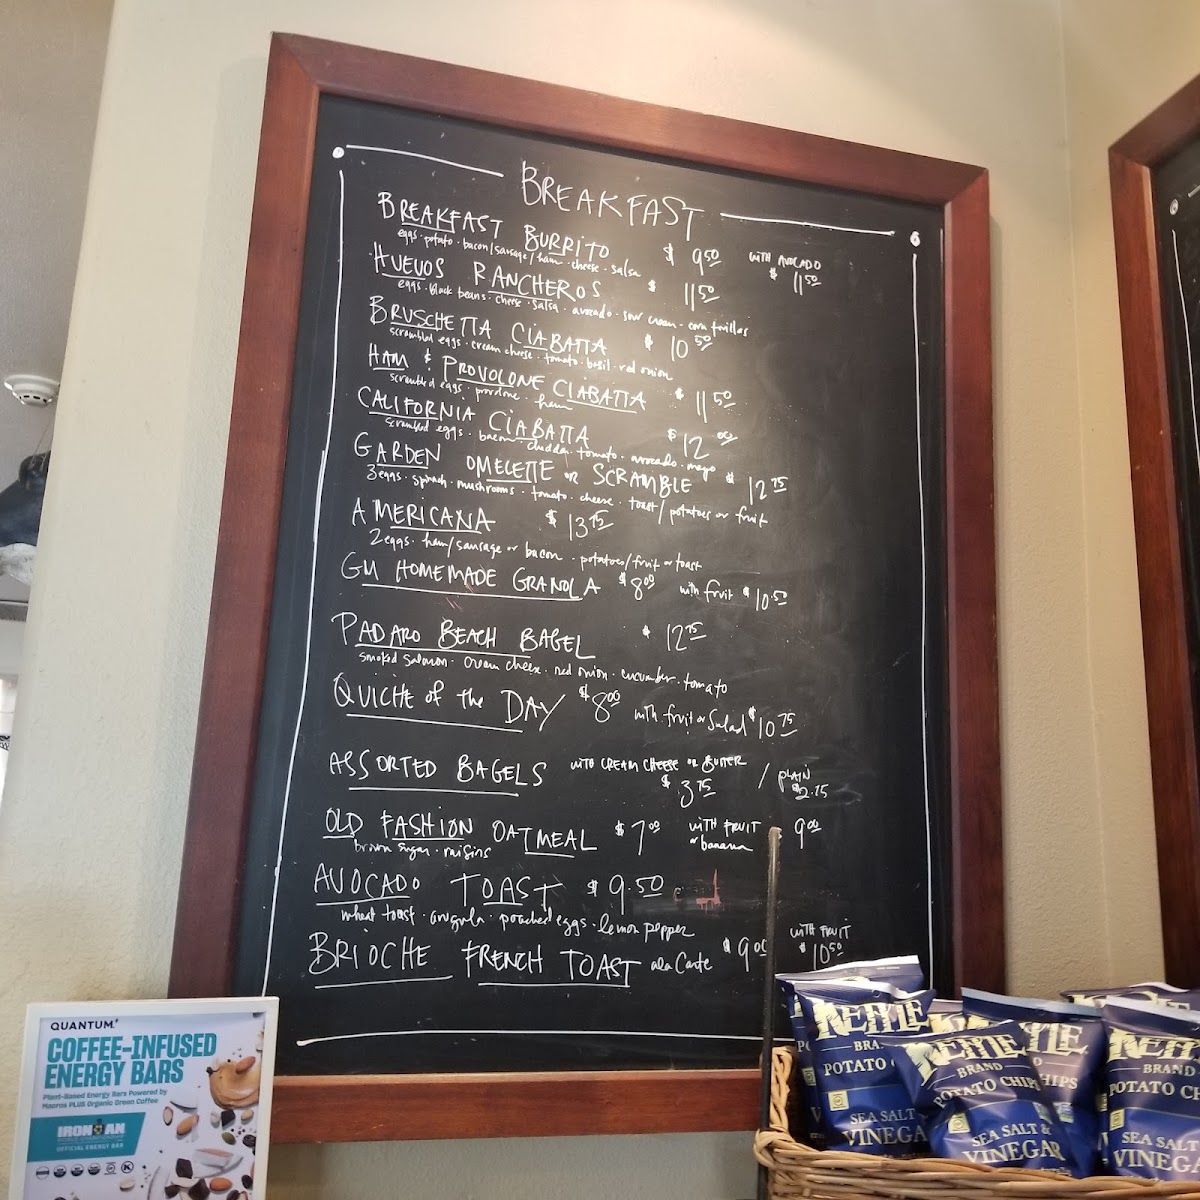 BREAKFAST
BREAKFAST BURRITO $ 9.50 WITH AVOCADO $ 11.50
eggs · potato · bacon/sausage/ham · cheese · salsa
HUEVOS RANCHEROS $ 11.50
eggs · black beans · cheese · salsa · avocado · sour cream · corn tortillas
BRUSCHETTA CIABATTA $ 10.50
scrambled eggs · cream cheese · tomato · basil · red onion
HAM & PROVOLONE CIABATTA $ 11.50
scrambled eggs · provolone · ham
CALIFORNIA CIABATTA $ 12.00
scrambled eggs · bacon · cheddar · tomato · avocado · mayo
GARDEN OMELETTE or SCRAMBLE $ 12.75
3 eggs · spinach · mushrooms · tomato · cheese · toast/potatoes or fruit
AMERICANA $ 13.75
2 eggs · ham/sausage or bacon · potatoes/fruit or toast
GM HOMEMADE GRANOLA $8.00 with fruit $10.50
PADARO BEACH BAGEL $ 12.75
smoked salmon · cream cheese · red onion · cucumber · tomato
QUICHE of the DAY $8.00 with fruit or salad $10.75
ASSORTED BAGELS WITH CREAM CHEESE or BUTTER $ 3.75 / PLAIN $2.75
OLD FASHION OATMEAL $7.00 WITH FRUIT or banana 9.00
brown sugar · raisins
AVOCADO TOAST $ 9.50
wheat toast · arugula · poached eggs · lemon pepper
BRIOCHE FRENCH TOAST ala Carte $9.00 WITH FRUIT $10.50
QUANTUM
COFFEE-INFUSED
ENERGY BARS
Plant-Based Energy Bars Powered by
Macros PLUS Organic Green Coffee
IRONMAN
OFFICIAL ENERGY BAR
KETTLE
BRAND
POTATO CHIPS
SEA SALT &
VINEGAR
KETTLE
BRAND
POTATO CHIPS
SEA SALT &
VINEGAR
KETTLE
BRAND
POTATO CH
SEA SALT
VINEGAR